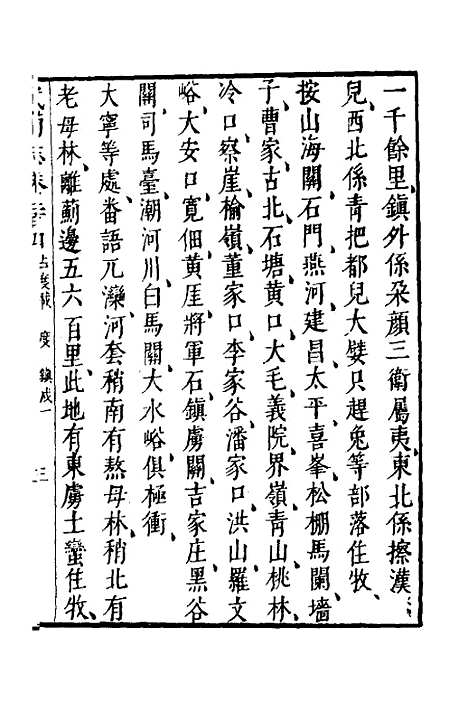 一千餘里、鎮外係朵顏三衛屬夷、東北係擦漢
兒、西北係青把都兒大嬖只趕兔等部落住牧、
按山海關石門、燕河建昌太平喜峯松棚馬蘭墻
子、曹家古北、石塘黃口、大毛義院界嶺青山桃林、
冷口、察崖榆嶺、董家口、李家谷、潘家口、洪山羅文
峪、大安口、寬佃黃厓將軍石鎮虜關、吉家庄、黑谷
關、司馬臺潮河川、白馬關、大水峪俱極衝、
大寧等處、番語兀灤河套、稍南有熬母林、稍北有
老母林、離薊邊五六百里、此地有東虜土蠻住牧、
占度載 度 鎮戍一 三